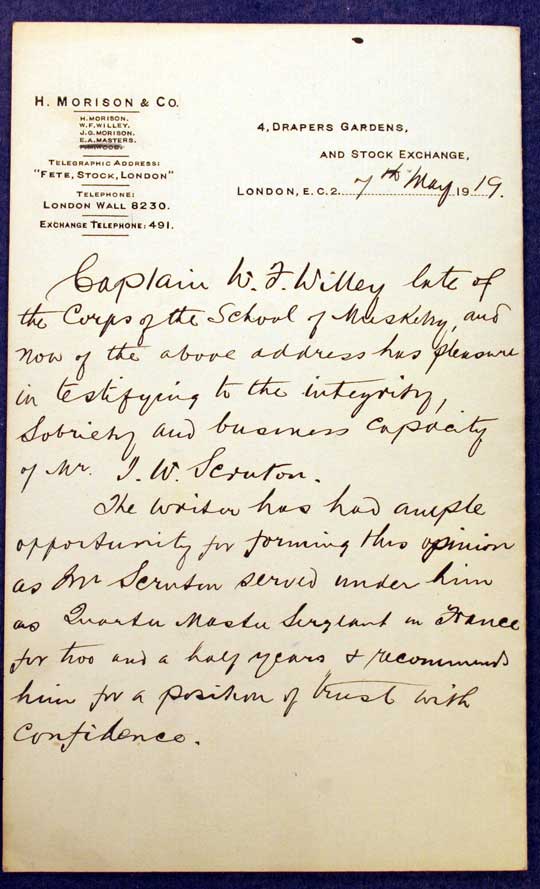 H. MORISON & CO.
H. MORISON.
W. F. WILLEY.
J. G. MORISON.
E. A. MASTERS.
TELEGRAPHIC ADDRESS:
"FETE, STOCK, LONDON"
TELEPHONE:
LONDON WALL 8230.
EXCHANGE TELEPHONE: 491.
4, DRAPERS GARDENS,
AND STOCK EXCHANGE,
LONDON, E.C.2. 7th May 1919.
Captain W. F. Willey late of
the Corps of the School of Musketry, and
now of the above address has pleasure
in testifying to the integrity,
Sobriety and business capacity
of Mr. J. W. Scruton.
The writer has had ample
opportunity for forming this opinion
as Mr Scruton served under him
as Quarter Master Sergeant in France
for two and a half years & recommends
him for a position of trust with
confidence.